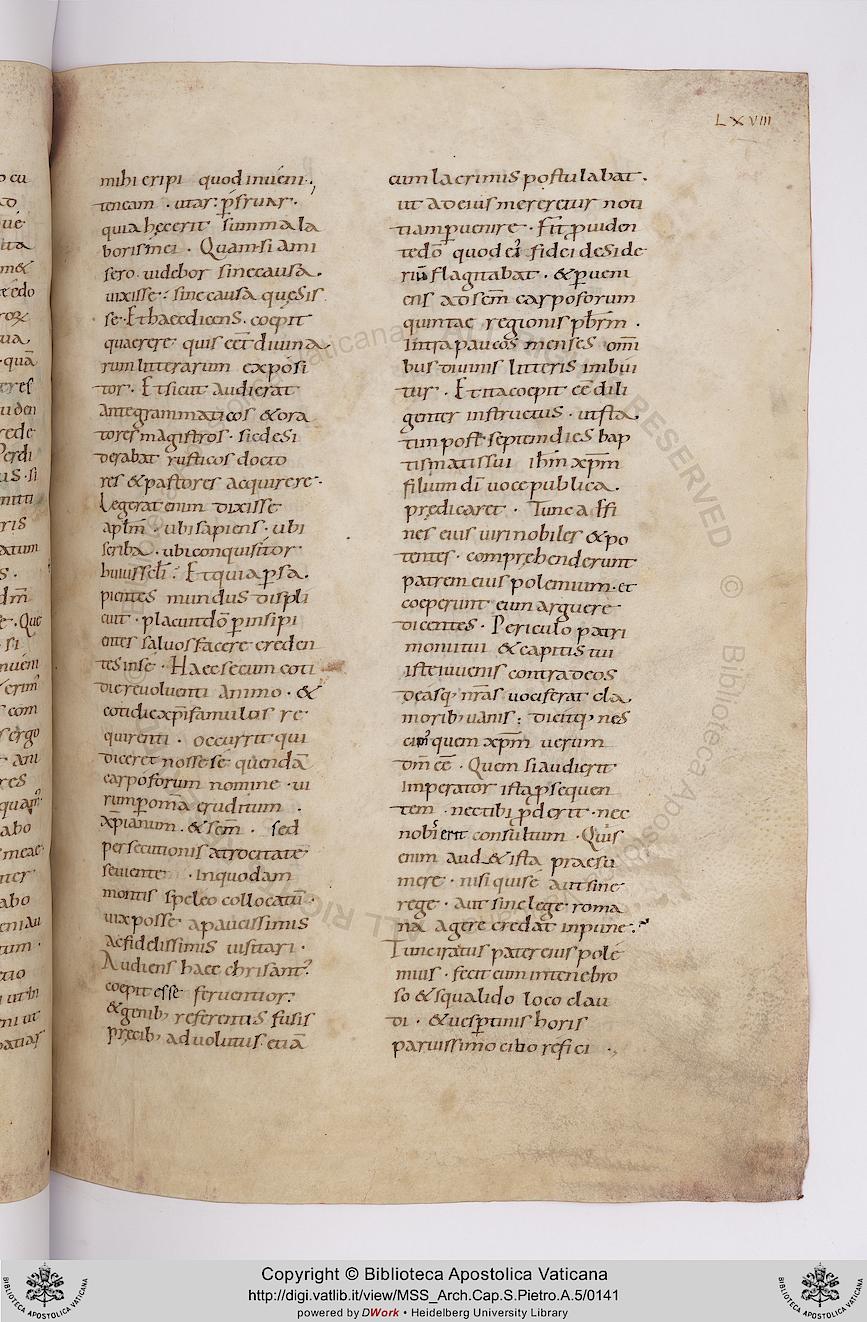 LXVIII
mihi eripi quod inueni.
teneam . utar. p̄fruar.
quia hęc erit summa la
boris mei . Quam si ami
sero. uidebor sine causa.
uixisse. sine causa quesis
se. Et haec dicens. coepit
quaerere quis eēt diuina
rum litterarum exposi
tor. Et sicut audierat
ante grammaticos & ora
tores magistros. sic desi
derabat rusticos docto
res & pastores acquirere.
Legerat enim dixisse
aplm̄ . ubi sapiens. ubi
scriba. ubi conquisitor
huius sc̄li. Et quia p̄ sa
pientes mundus displi
cuit. placuit dō p̄ insipi
entes saluos facere creden
tes in se . Haec secum coti
die reuoluenti animo. &
cotidie xp̄i famulos re
quirenti . occurrit qui
diceret nosse sé quendā
carposforum nomine . ui
rum p̄ omā eruditum .
xp̄ianum. & sēm . sed
persecutionis atrocitate
seuiente . in quodam
montis speleo collocatū .
uix posse a paucissimis
ac fidelissimis uisitari.
Audiens haec chrisant'
coepit esse feruentior.
& genib; referentis fusis
precib; aduolutus. etiā
cum lacrimis postulabat.
ut ad eius mereretur noti
tiam p̄uenire . Fit p̄uiden
te dō quod ei' fidei deside
riū flagitabat . & p̄ueni
ens ad sēm carposforum
quintae regionis pb̄rm .
Intra paucos menses om̄i
bus diuinis litteris imbui
tur . Et ita coepit ēē dili
genter instructus . ut sta
tim post septem dies bap
tismatis sui ih̄m xp̄m
filium dī uoce publica.
predicaret . Tunc affi
nes eius uiri nobiles & po
tentes . comprehenderunt
patrem eius polemium. et
coeperunt eum arguere
dicentes . Periculo patri
monii tui & capitis tui
iste iuuenis contra deos
deasq; nr̄as uociferat cla
morib; uanis. dicitq; nes
cio quem xp̄m uerum
dm̄ ēē . Quem si audierit
imperator ista p̄sequen
tem . nec tibi p̄derit. nec
nobis erit consultum . Quis
enim aud& ista praesu
mere . nisi qui se aut sine
rege . aut sine lege roma
nā agere credat inpune.
Tunc iratus pater eius pole
mius . fecit eum in tenebro
so & squalido loco clau
di . & uesp̄tinis horis
paruissimo cibo refici .
Copyright © Biblioteca Apostolica Vaticana
http://digi.vatlib.it/view/MSS_Arch.Cap.S.Pietro.A.5/0141
powered by DWork • Heidelberg University Library